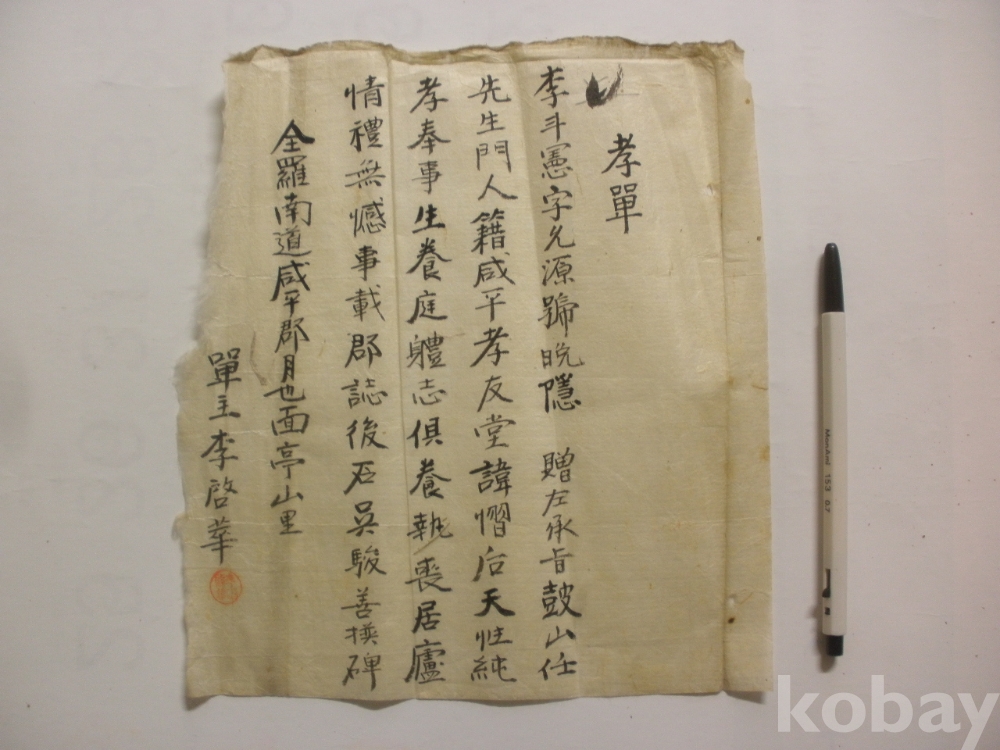 孝單
李斗憲字允源號晩隱 贈左承旨鼓山任
先生門人籍咸平孝友堂諱慴后天性純
孝奉事生養庭軆志俱養執喪居廬
情禮無憾事載郡誌後石吳駿善撰碑
全羅南道咸平郡月也面亭山里
單主李啓華
MonAmi 153 07
kobay